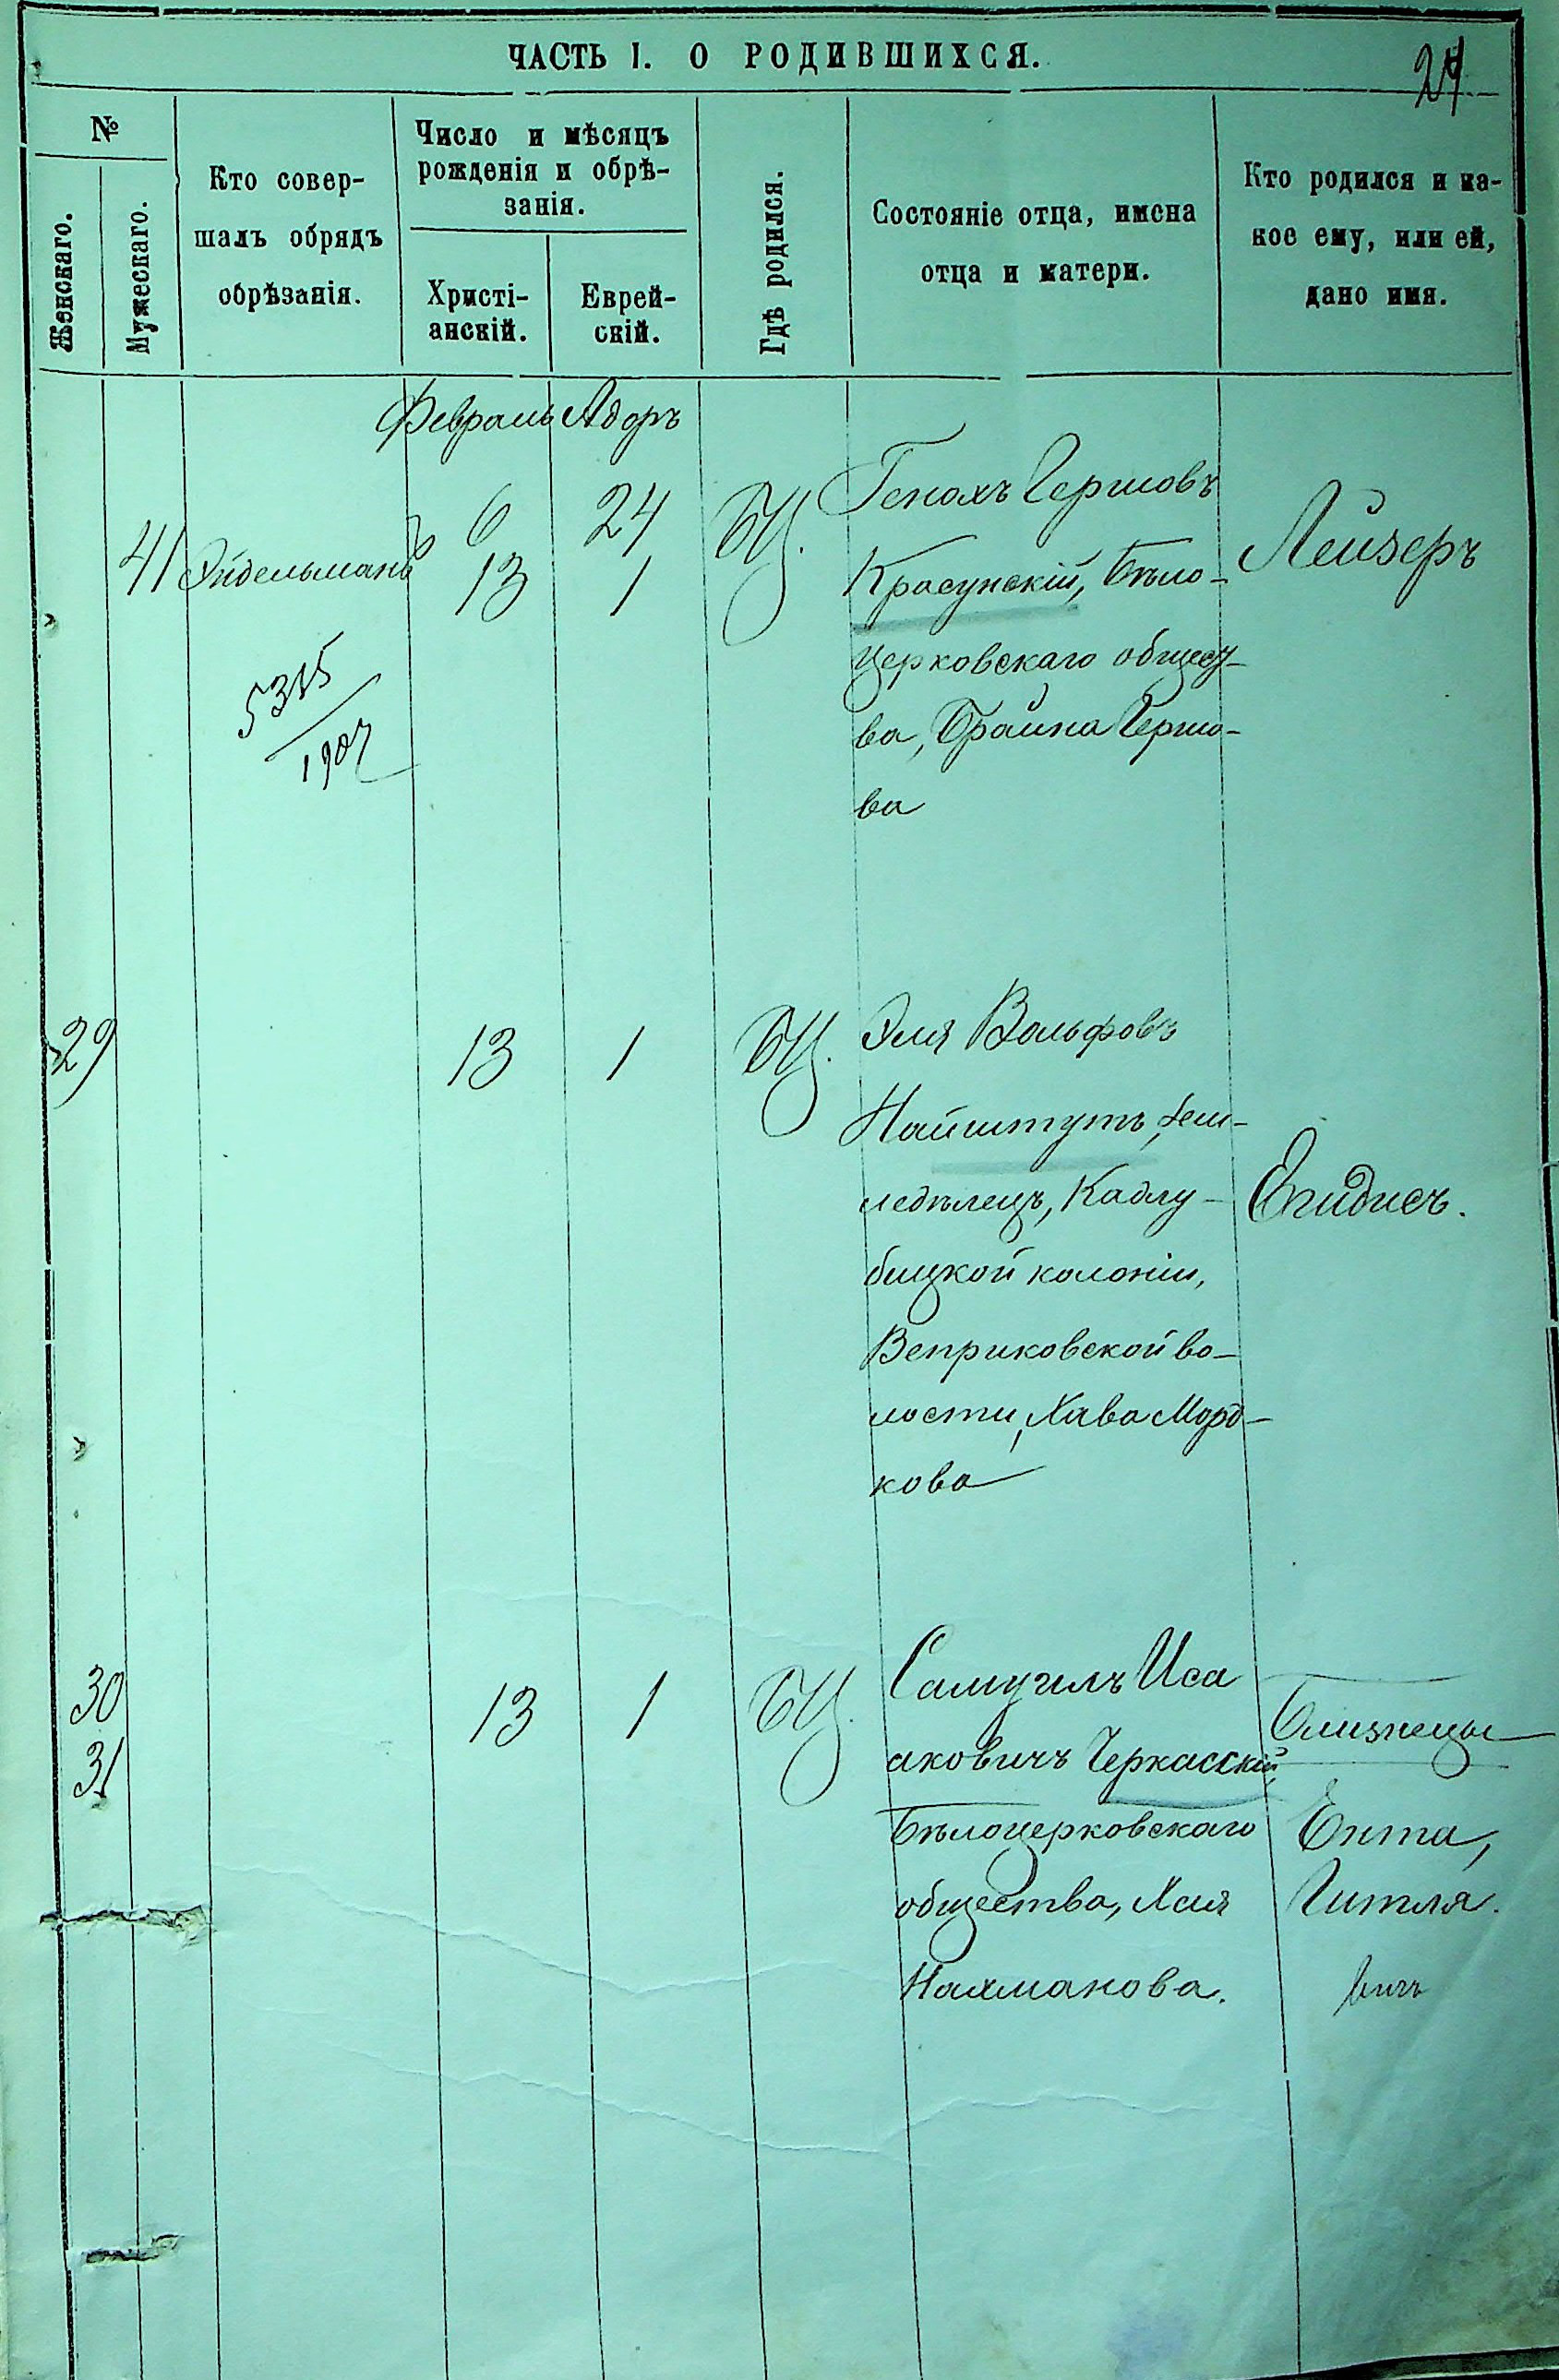 ЧАСТЬ I. О РОДИВШИХСЯ.
№
Женскаго.
Мужескаго.
Кто совер-
шалъ обрядъ
обрѣзанія.
Число и мѣсяцъ
рожденія и обрѣ-
занія.
Христі-
анскій.
Еврей-
скій.
Гдѣ родился.
Состояніе отца, имена
отца и матери.
Кто родился и ка-
кое ему, или ей,
дано имя.
Февраль Адоръ
41 Эйдельманъ
6 24 БЦ.
13 1
5315
1907
Генохъ Гершовъ
Красунскій, Бѣло-
церковскаго общест-
ва, Брайна Гершо-
ва
Лейзеръ
29 13 1 БЦ.
Эля Вольфовъ
Найштутъ, зем-
ледѣлецъ, Кадлу-
бицкой колоніи,
Веприковской во-
лости, Хава Морд-
кова
30
31
13 1 БЦ.
Самуилъ Иса
аковичъ Черкасскій,
Бѣлоцерковскаго
общества, Хая
Нахманова.
Близнецы
Ента,
Гитля.